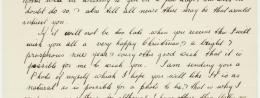 doubt do so, & also tell all news there may be that would
interest you.
If it will not be too late when you receive this I will
wish you all a very happy Christmas, & a bright &
prosperous new year & every other good wish that it is
possible for me to wish you. I am sending you a
Photo of myself which I hope you will like. It is as
natural as is possible for a photo to be & that is why I